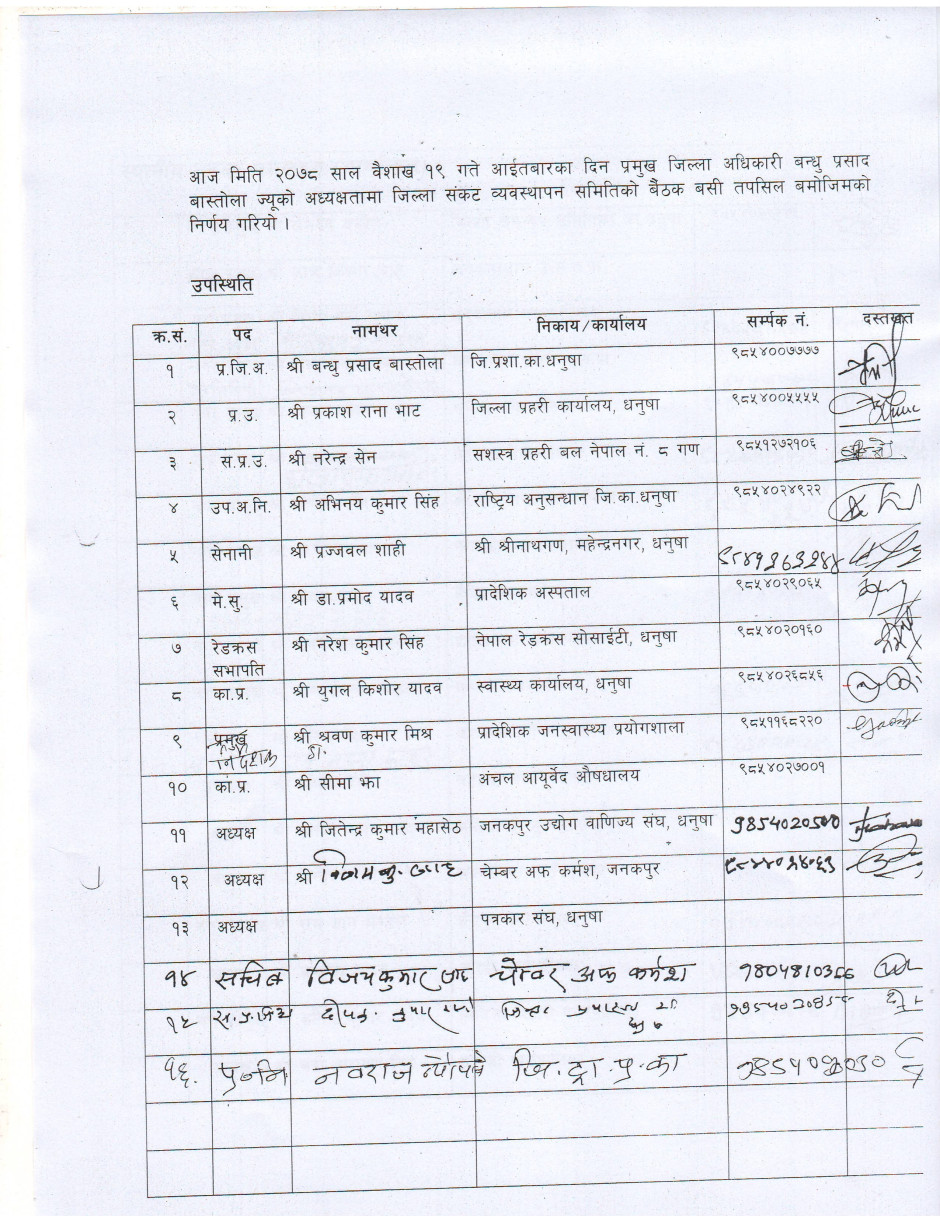 आज मिति २०७८ साल वैशाख १९ गते आईतबारका दिन प्रमुख जिल्ला अधिकारी बन्धु प्रसाद
बास्तोला ज्यूको अध्यक्षतामा जिल्ला संकट व्यवस्थापन समितिको बैठक बसी तपसिल बमोजिमको
निर्णय गरियो ।
उपस्थिति
क्र.सं. पद नामथर निकाय/कार्यालय सर्म्पक नं. दस्तखत
१ प्र.जि.अ. श्री बन्धु प्रसाद बास्तोला जि.प्रशा.का.धनुषा ९८५४००७७७७
२ प्र.उ. श्री प्रकाश राना भाट जिल्ला प्रहरी कार्यालय, धनुषा ९८५४००५५५५
३ स.प्र.उ. श्री नरेन्द्र सेन सशस्त्र प्रहरी बल नेपाल नं. ८ गण ९८५१२७२१०६
४ उप.अ.नि. श्री अभिनय कुमार सिंह राष्ट्रिय अनुसन्धान जि.का.धनुषा ९८५४०२४९२२
५ सेनानी श्री प्रज्जवल शाही श्री श्रीनाथगण, महेन्द्रनगर, धनुषा
६ मे.सु. श्री डा.प्रमोद यादव प्रादेशिक अस्पताल ९८५४०२९०६५
७ रेडक्रस सभापति श्री नरेश कुमार सिंह नेपाल रेडक्रस सोसाईटी, धनुषा ९८५४०२०१६०
८ का.प्र. श्री युगल किशोर यादव स्वास्थ्य कार्यालय, धनुषा ९८५४०२६८५६
९ प्रमुख श्री श्रवण कुमार मिश्र प्रादेशिक जनस्वास्थ्य प्रयोगशाला ९८५११६८२२०
१० का.प्र. श्री सीमा झा अंचल आयूर्वेद औषधालय ९८५४०२७००१
११ अध्यक्ष श्री जितेन्द्र कुमार महासेठ जनकपुर उद्योग वाणिज्य संघ, धनुषा 9854020500
१२ अध्यक्ष श्री चेम्बर अफ कर्मश, जनकपुर
१३ अध्यक्ष पत्रकार संघ, धनुषा
१४ सचिव विजय कुमार चेम्बर अफ कर्मश 9804810366
१५ कुमार
१६. प्र.नि नवराज